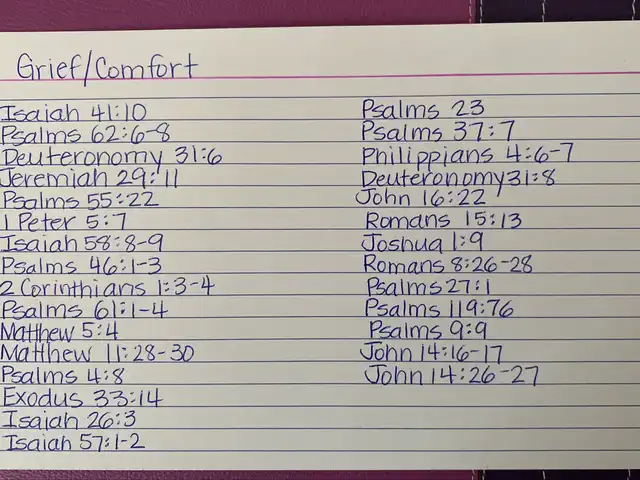 Grief/Comfort
Isaiah 41:10
Psalms 62:6-8
Deuteronomy 31:6
Jeremiah 29:11
Psalms 55:22
1 Peter 5:7
Isaiah 58:8-9
Psalms 46:1-3
2 Corinthians 1:3-4
Psalms 61:1-4
Matthew 5:4
Matthew 11:28-30
Psalms 4:8
Exodus 33:14
Isaiah 26:3
Isaiah 57:1-2
Psalms 23
Psalms 37:7
Philippians 4:6-7
Deuteronomy 31:8
John 16:22
Romans 15:13
Joshua 1:9
Romans 8:26-28
Psalms 27:1
Psalms 119:76
Psalms 9:9
John 14:16-17
John 14:26-27